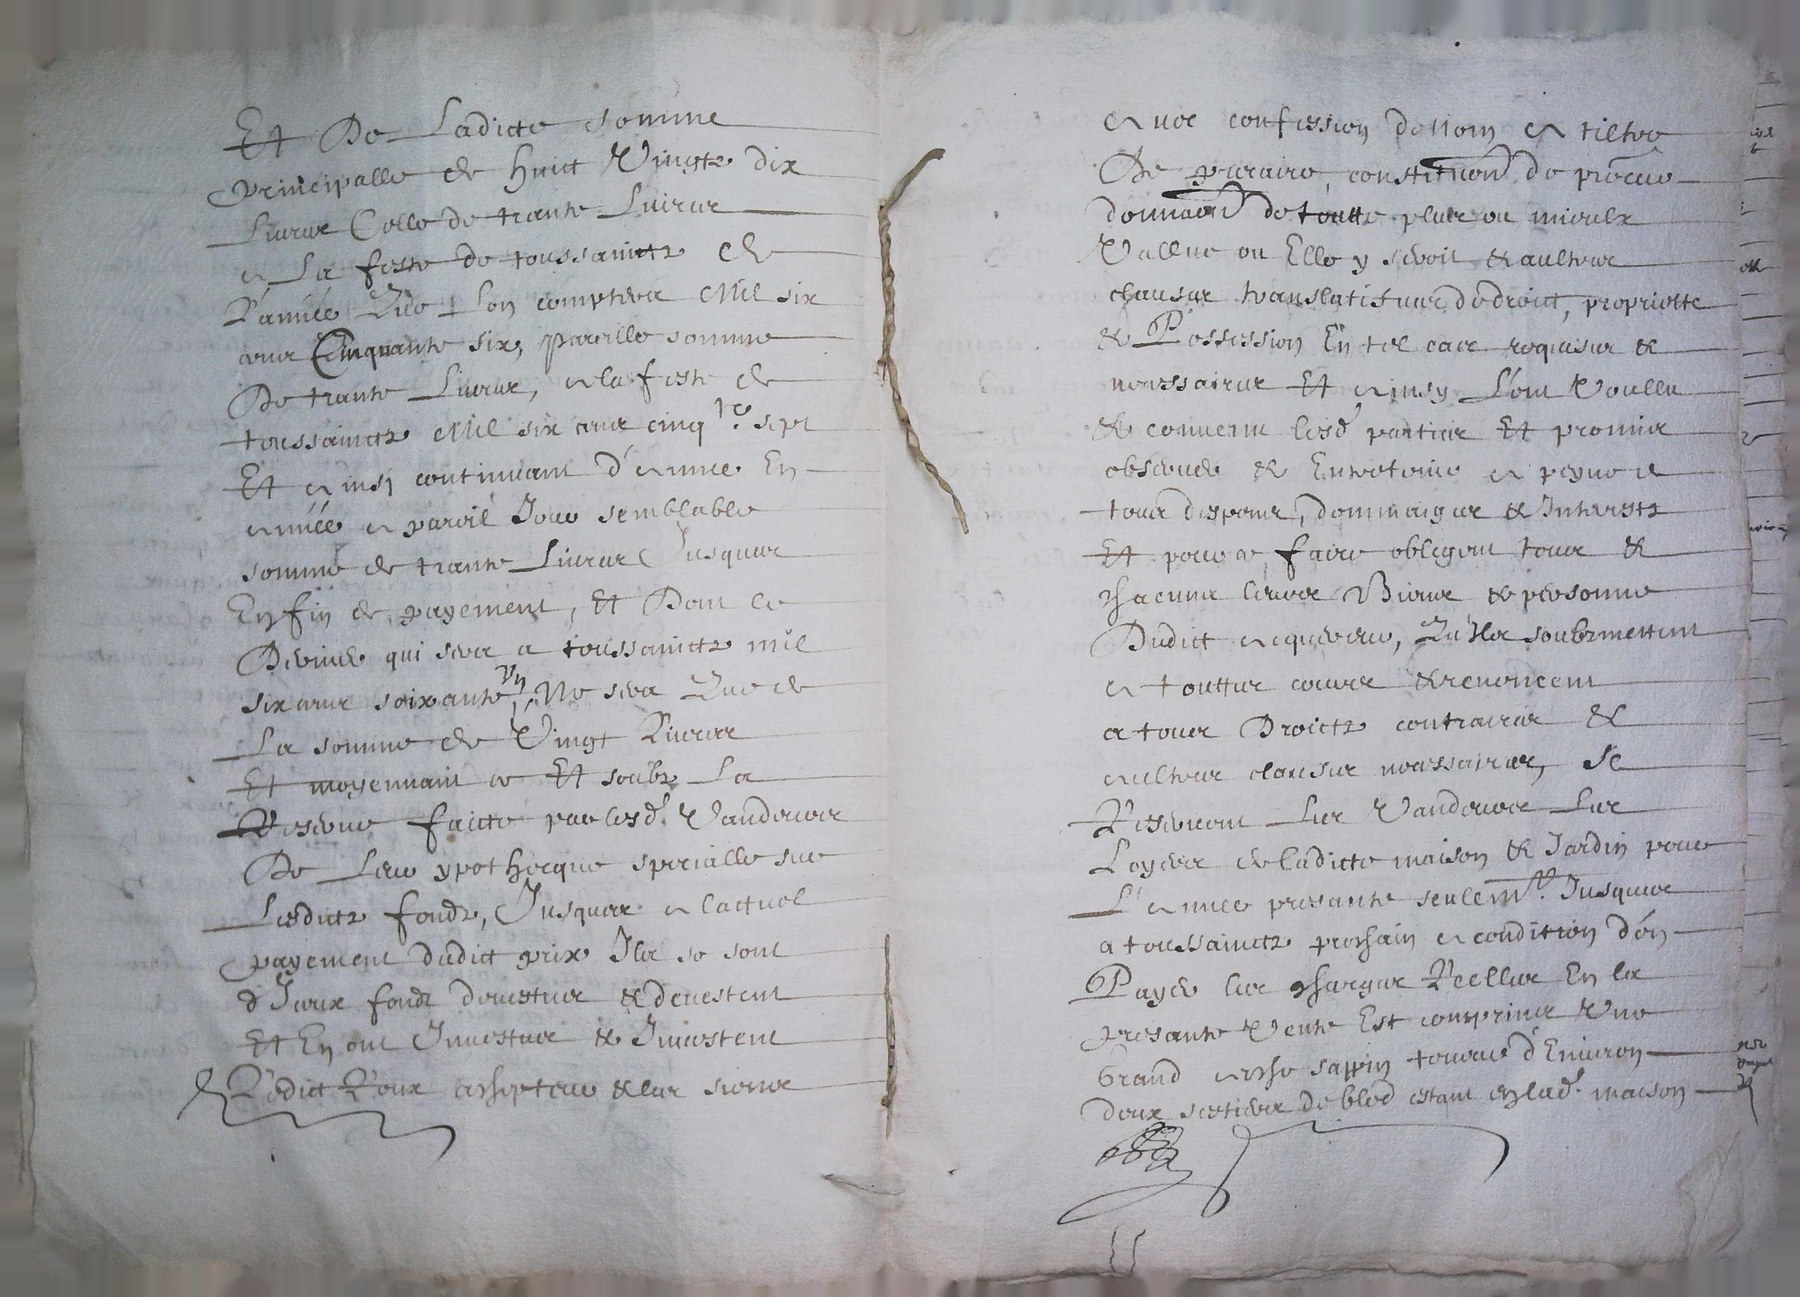 Et De Ladicte somme
principalle de huict Vingtz dix
Livres Celle de trante Livres
a La feste de toussainctz de
L'année Que Lon comptera Mil six
cens Cinquante six, pareille somme
De trante Livres, a la feste de
toussainctz Mil six cens cinq.te sept
Et ainsi continuant d'année En
année a pareil Jour semblable
somme de trante Livres Jusques
En fin de payement, Et Dont le
Dernier qui sera a toussainctz mil
six cens soixante Un, Ne sera Que de
La somme de Vingt Livres
Et moyennant ce Et soubz La
Reserve faicte par lesd. Vandeurs
De Leur ypothecque specialle sur
Lesdictz fondz, Jusques a lactuel
payement dudict prix Ilz se sont
d'Iceux fondz devestus & devestent
Et En ont Investus & Investent
Ledict Roux achepteur & les siens
avec confession de Nom a tiltre
De precaire, constitution de procur
donnaon de toutte plus ou mieulx
Vallue ou Elle y seroit & aultres
clauses translatifves de droict, propriette
& Possession En tel cas requises &
necessaires Et ainsy L'ont Voullu
& convenu lesd. parties Et promis
observer & Entretenir a peyne de
tous despens, dommaiges & Interestz
Et pour ce faire obligent tous &
chacuns leurs Biens & personne
Dudict acquereur, Qu'Ilz soubzmettent
a touttes cours & renoncent
a tous Droictz contraires &
aultres clauses necessaires, se
Reservent Les Vandeurs Les
Loyers de ladicte maison & Jardin pour
L'année presante seulemt. Jusques
a toussainctz prochain a condition d'en
Payer les charges Reelles En la
presante Vente Est comprins Une
Grand arche sappin tenant d'Environ
deux sestiers de bled estant en lad. maison